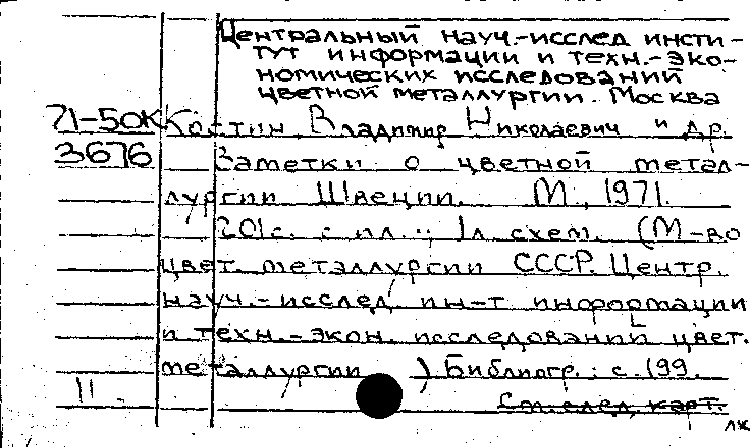 Центральный науч.-исслед инсти-
тут информации и техн.-эко-
номических исследований
цветной металлургии. Москва
71-50К Костин, Владимир Николаевич и др.
3676 Заметки о цветной метал-
лургии Швеции. М., 1971.
201с. с ил.; 1л. схем. (М-во
цвет. металлургии СССР. Центр.
науч.-исслед. ин-т информации
и техн.-экон. исследований цвет.
металлургии ) Библиогр.: с. 199.
11.
См. след. карт.
лж